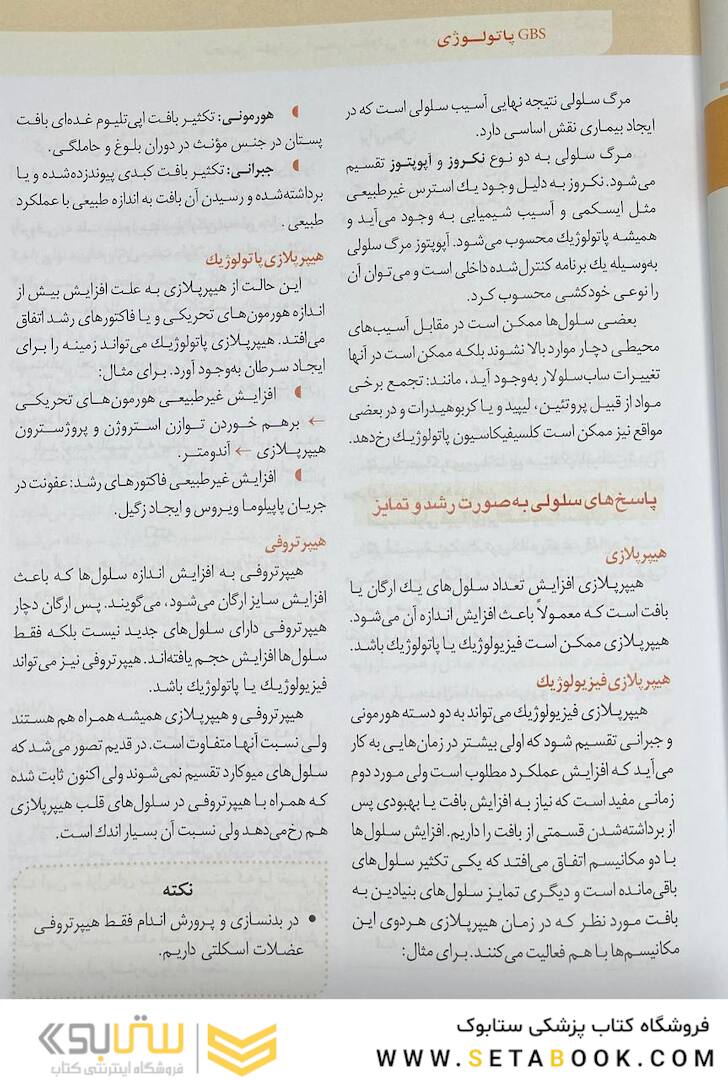 GBS پاتولوژی
مرگ سلولی نتیجه نهایی آسیب سلولی است که در
ایجاد بیماری نقش اساسی دارد.
مرگ سلولی به دو نوع نکروز و آپوپتوز تقسیم
می‌شود. نکروز به دلیل وجود یك استرس غیرطبیعی
مثل ایسکمی و آسیب شیمیایی به وجود می‌آید و
همیشه پاتولوژیك محسوب می‌شود. آپوپتوز مرگ سلولی
به‌وسیله یك برنامه کنترل‌شده داخلی است و می‌توان آن
را نوعی خودکشی محسوب کرد.
بعضی سلول‌ها ممکن است در مقابل آسیب‌های
محیطی دچار موارد بالا نشوند بلکه ممکن است در آنها
تغییرات ساب‌سلولار به‌وجود آید، مانند: تجمع برخی
مواد از قبیل پروتئین، لیپید و یا کربوهیدرات و در بعضی
مواقع نیز ممکن است کلسیفیکاسیون پاتولوژیك رخ‌دهد.
پاسخ‌های سلولی به‌صورت رشد و تمایز
هیپرپلازی
هیپرپلازی افزایش تعداد سلول‌های یك ارگان یا
بافت است که معمولاً باعث افزایش اندازه آن می‌شود.
هیپرپلازی ممکن است فیزیولوژیك یا پاتولوژیك باشد.
هیپرپلازی فیزیولوژیك
هیپرپلازی فیزیولوژیك می‌تواند به دو دسته هورمونی
و جبرانی تقسیم شود که اولی بیشتر در زمان‌هایی به کار
می‌آید که افزایش عملکرد مطلوب است ولی مورد دوم
زمانی مفید است که نیاز به افزایش بافت یا بهبودی پس
از برداشته‌شدن قسمتی از بافت را داریم. افزایش سلول‌ها
با دو مکانیسم اتفاق می‌افتد که یکی تکثیر سلول‌های
باقی‌مانده است و دیگری تمایز سلول‌های بنیادین به
بافت مورد نظر که در زمان هیپرپلازی هردوی این
مکانیسم‌ها با هم فعالیت می‌کنند. برای مثال:
هورمونی: تکثیر بافت اپی‌تلیوم غده‌ای بافت
پستان در جنس مؤنث در دوران بلوغ و حاملگی.
جبرانی: تکثیر بافت کبدی پیوندزده‌شده و یا
برداشته‌شده و رسیدن آن بافت به اندازه طبیعی با عملکرد
طبیعی.
هیپرپلازی پاتولوژیك
این حالت از هیپرپلازی به علت افزایش بیش از
اندازه هورمون‌های تحریکی و یا فاکتورهای رشد اتفاق
می‌افتد. هیپرپلازی پاتولوژیك می‌تواند زمینه را برای
ایجاد سرطان به‌وجود آورد. برای مثال:
افزایش غیرطبیعی هورمون‌های تحریکی
← برهم خوردن توازن استروژن و پروژسترون
هیپرپلازی ← آندومتر.
افزایش غیرطبیعی فاکتورهای رشد: عفونت در
جریان پاپیلوما ویروس و ایجاد زگیل.
هیپرتروفی
هیپرتروفی به افزایش اندازه سلول‌ها که باعث
افزایش سایز ارگان می‌شود، می‌گویند. پس ارگان دچار
هیپرتروفی دارای سلول‌های جدید نیست بلکه فقط
سلول‌ها افزایش حجم یافته‌اند. هیپرتروفی نیز می‌تواند
فیزیولوژیك یا پاتولوژیك باشد.
هیپرتروفی و هیپرپلازی همیشه همراه هم هستند
ولی نسبت آنها متفاوت است. در قدیم تصور می‌شد که
سلول‌های میوکارد تقسیم نمی‌شوند ولی اکنون ثابت شده
که همراه با هیپرتروفی در سلول‌های قلب هیپرپلازی
هم رخ‌می‌دهد ولی نسبت آن بسیار اندك است.
نکته
• در بدنسازی و پرورش اندام فقط هیپرتروفی
عضلات اسکلتی داریم.
فروشگاه کتاب پزشکی ستابوک
WWW.SETABOOK.COM
ستابوک
فروشگاه اینترنتی کتاب